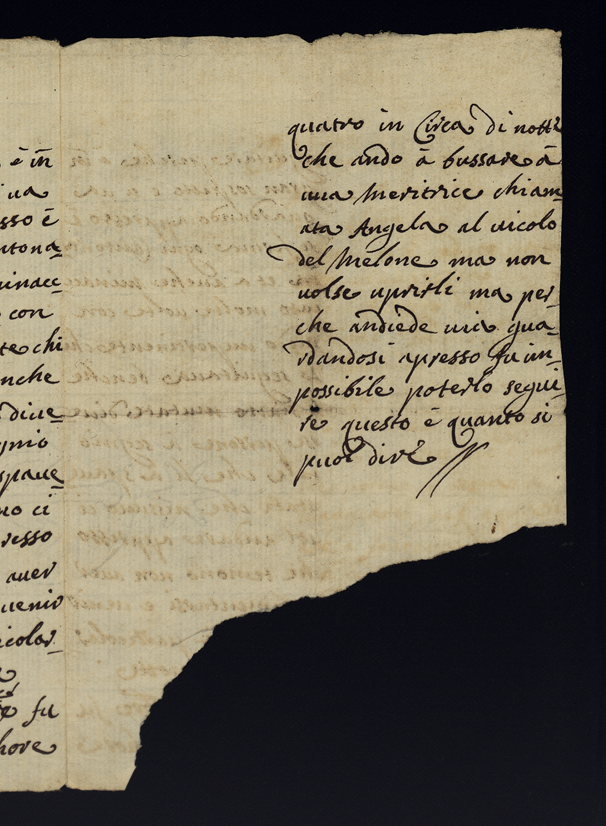 è in
ua
sso è
ntona=
inacc=
con
te chi
nche
dice=
gnio
spaue=
no ci
resso
auer
uenir
icolar=
fu
hore
quatro in Circa di notte
che ando à bussare à
una Meritrice chiam=
ata Angela al uicolo
del Melone ma non
uolse uprirli ma per=
che andiede uia gua=
rdandosi apresso fu im=
possibile poterlo segui=
re questo è quanto si
puol dire